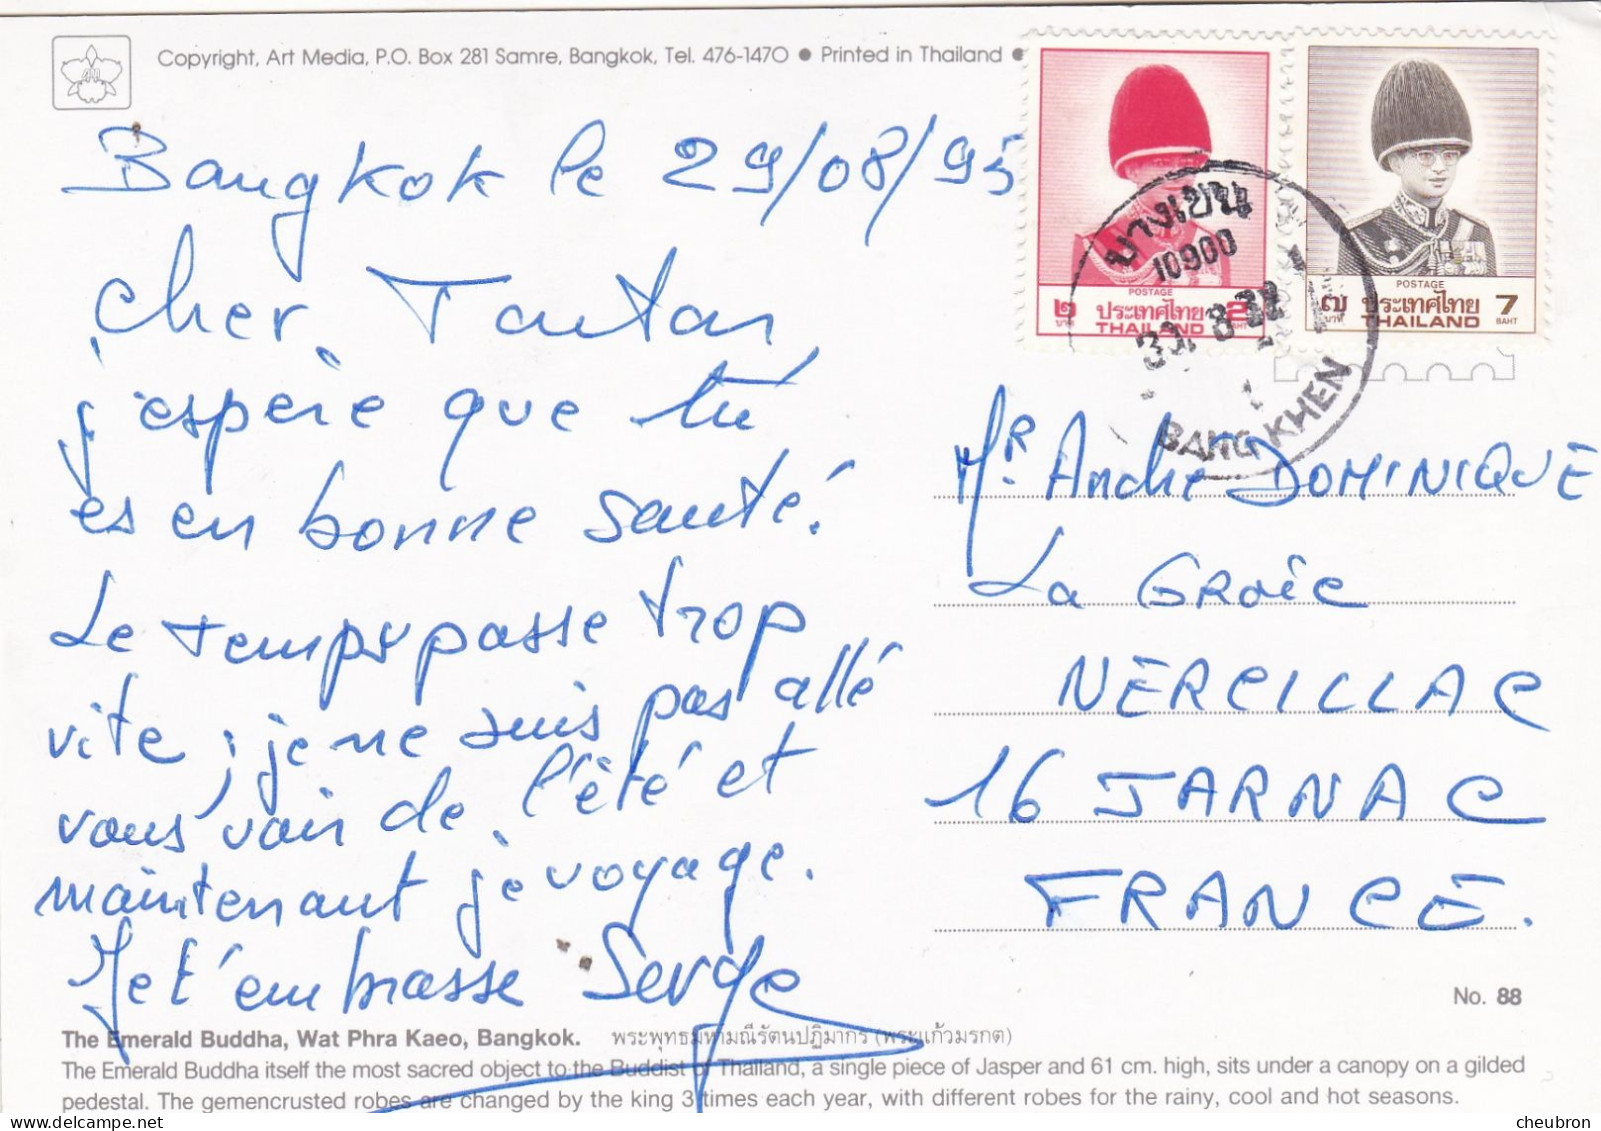 Copyright, Art Media, P.O. Box 281 Samre, Bangkok, Tel. 476-1470 ● Printed in Thailand ●
Bangkok le 29/08/95
Cher Tautau,
j'espère que tu
es en bonne santé.
Le temps passe trop
vite, je ne suis pas allé
vous voir de l'été et
maintenant je voyage.
Je t'embrasse Serge
๒
บาท
POSTAGE
ประเทศไทย
THAILAND
2
BAHT
๗
บาท
POSTAGE
ประเทศไทย
THAILAND
7
BAHT
บางเขน
10900
BANG KHEN
Mr. André DOMINIQUE
La GROIE
NERCILLAC
16 JARNAC
FRANCE.
No. 88
The Emerald Buddha, Wat Phra Kaeo, Bangkok. พระพุทธมหามณีรัตนปฏิมากร (พระแก้วมรกต)
The Emerald Buddha itself the most sacred object to the Buddist of Thailand, a single piece of Jasper and 61 cm. high, sits under a canopy on a gilded
pedestal. The gemencrusted robes are changed by the king 3 times each year, with different robes for the rainy, cool and hot seasons.
cheubron